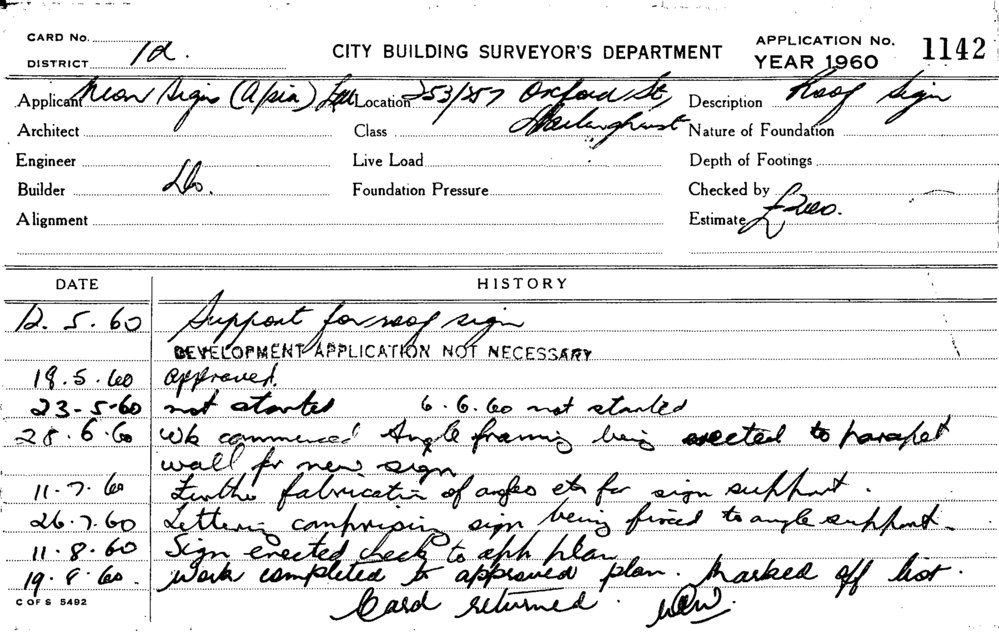 CARD No.
DISTRICT 1d.
CITY BUILDING SURVEYOR'S DEPARTMENT
APPLICATION No. 1142
YEAR 1960
Applicant Neon Signs (A/sia) Ltd Location 253/257 Oxford St, Description Roof Sign
Architect Class Darlinghurst Nature of Foundation
Engineer Live Load Depth of Footings
Builder Do. Foundation Pressure Checked by
Alignment Estimate £200.
DATE HISTORY
12.5.60 Support for roof sign
DEVELOPMENT APPLICATION NOT NECESSARY
18.5.60 approved.
23-5-60 not started 6.6.60 not started
28.6.60 Wk commenced Angle framing being erected to parapet
wall for new sign
11-7-60 Further fabrication of angles etc for sign support.
26.7.60 Lettering comprising sign being fixed to angle support.
11.8.60 Sign erected check to app plan
19.8.60. Work completed to approved plan. Marked off list.
C OF S 5492
Card returned.